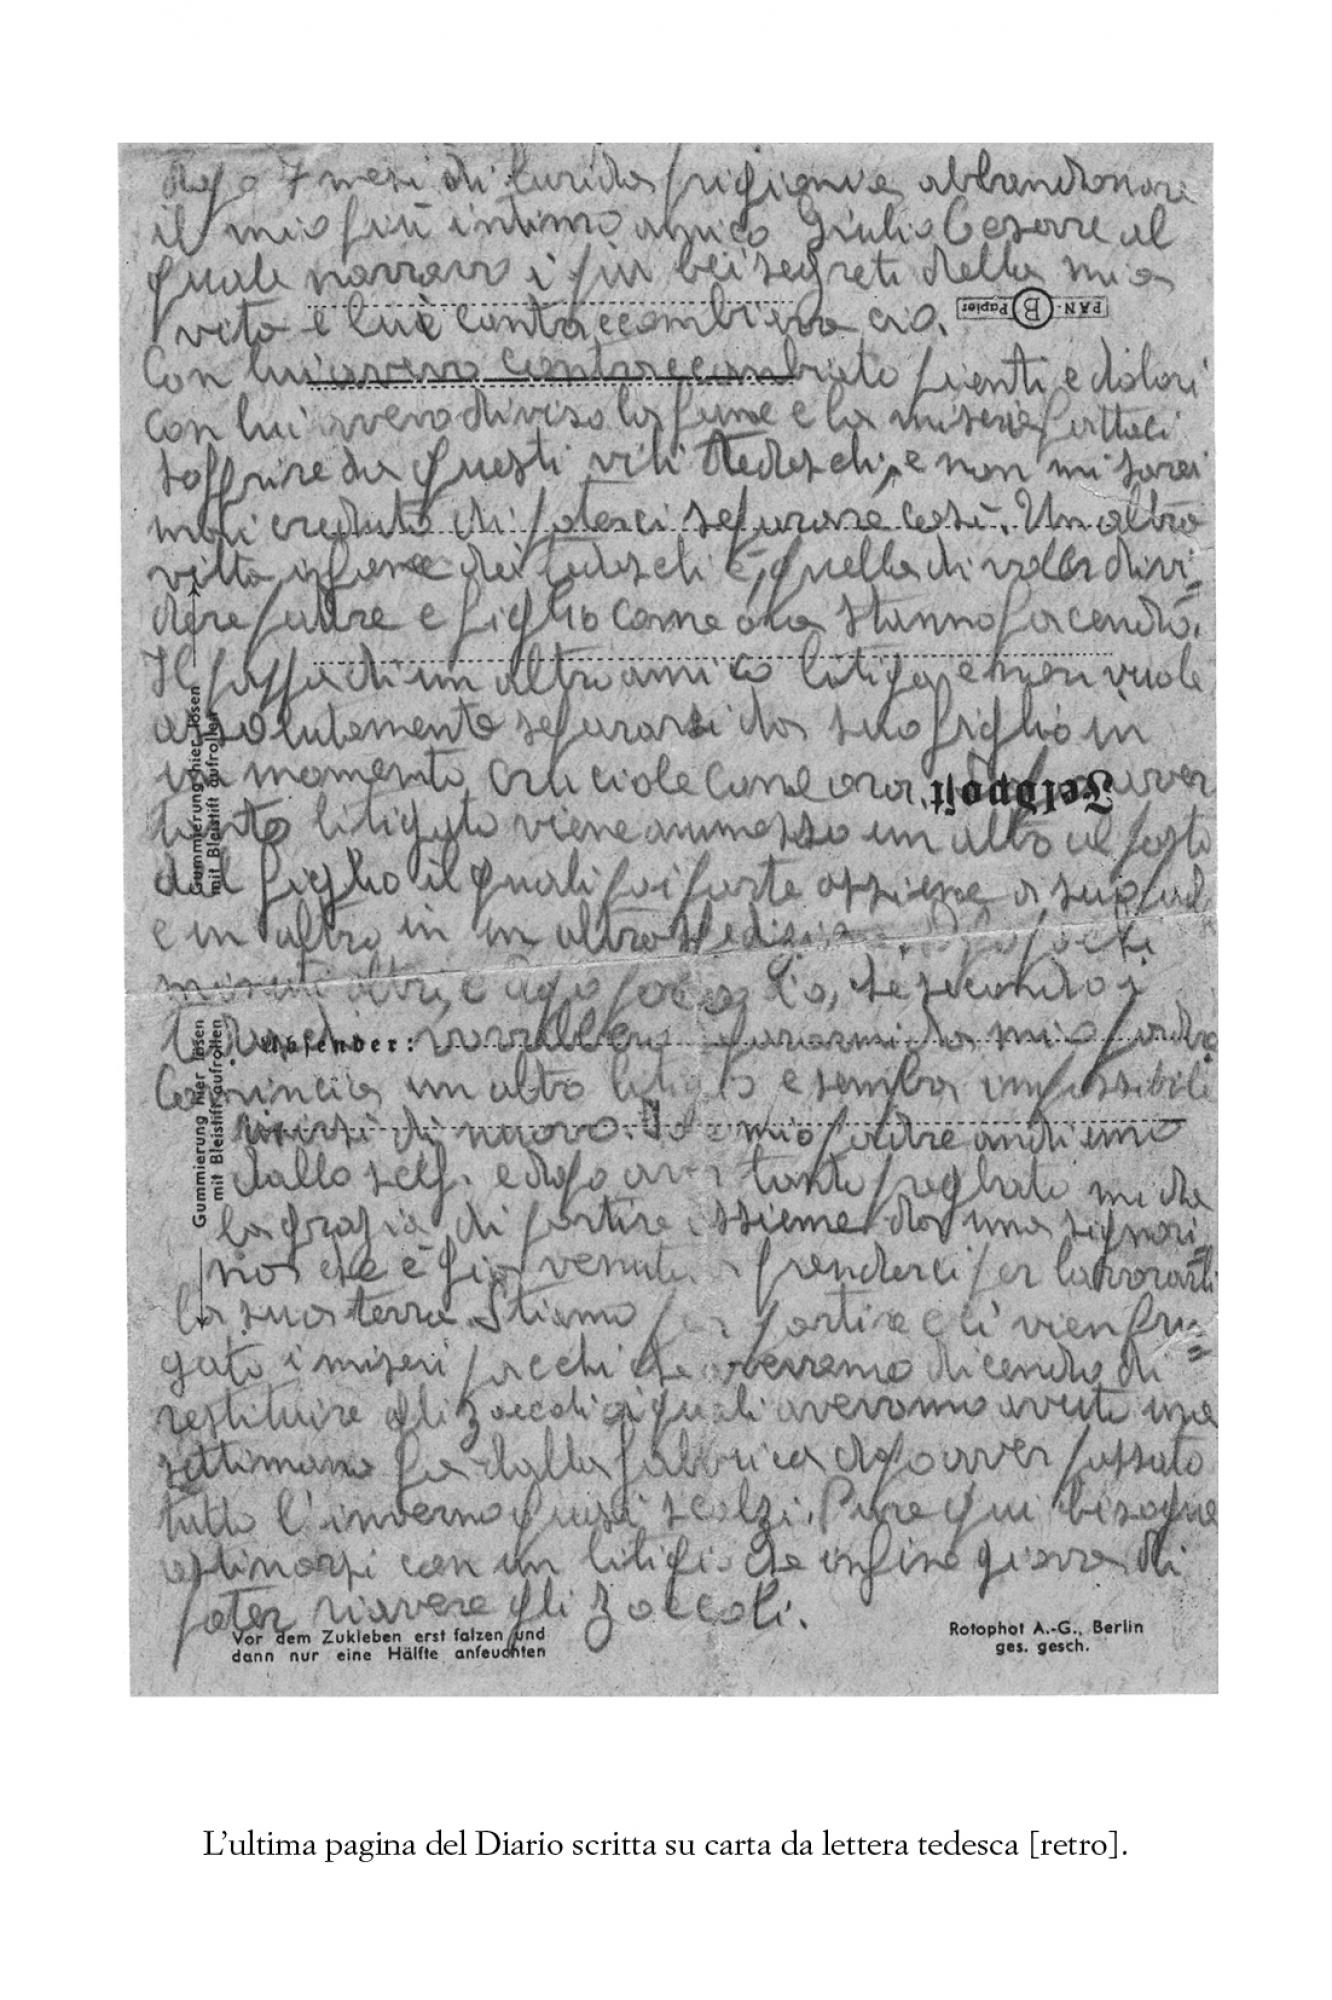 dopo 7 mesi di lurida prigionia abbandonare
il mio più intimo amico Giulio Cesare al
quale narravo i più bei segreti della mia
vita e lui contraccambiava ciò.
PAN-B-Papier
Con lui avevo contraccambiato pianti e dolori
con lui avevo diviso la fame e la miseria fattaci
soffrire da questi vili tedeschi, e non mi sarei
mai creduto di poterci separare così. Un altra
dei tedeschi è quella di voler divi=
dere padre e figlio come ora stanno facendo.
Il pappà di un altro amico litiga e non vuole
assolutamente separarsi da suo figlio in
un momento cruciale come ora.
Feldpost
litigato viene ammesso un altro al posto
del figlio il quale poi parte assieme a suo
e un altro in un altro
minuti altri, e
Absender: mio padre
Comincia un altro litigio e sembra impossibile
di nuovo. Io e mio padre andiamo
dallo e dopo aver tanto pregato mi da
la grazia di partire assieme da una signori=
na che è già venuta a prenderci per lavorarli
la sua terra. Stiamo per partire e ci vien fru=
gato i miseri pacchi che avevamo dicendo di
restituire gli zoccoli i quali avevamo avuti una
settimana fa dalla fabbrica dopo aver passato
tutto l'inverno quasi scalzi. Pure qui bisogna
ostinarsi con un litigio che infine giova di
poter riavere gli zoccoli.
Gummierung hier lösen
mit Bleistift aufrollen
Gummierung hier lösen
mit Bleistift aufrollen
Vor dem Zukleben erst falzen und
dann nur eine Hälfte anfeuchten
Rotophot A.-G., Berlin
ges. gesch.
L'ultima pagina del Diario scritta su carta da lettera tedesca [retro].